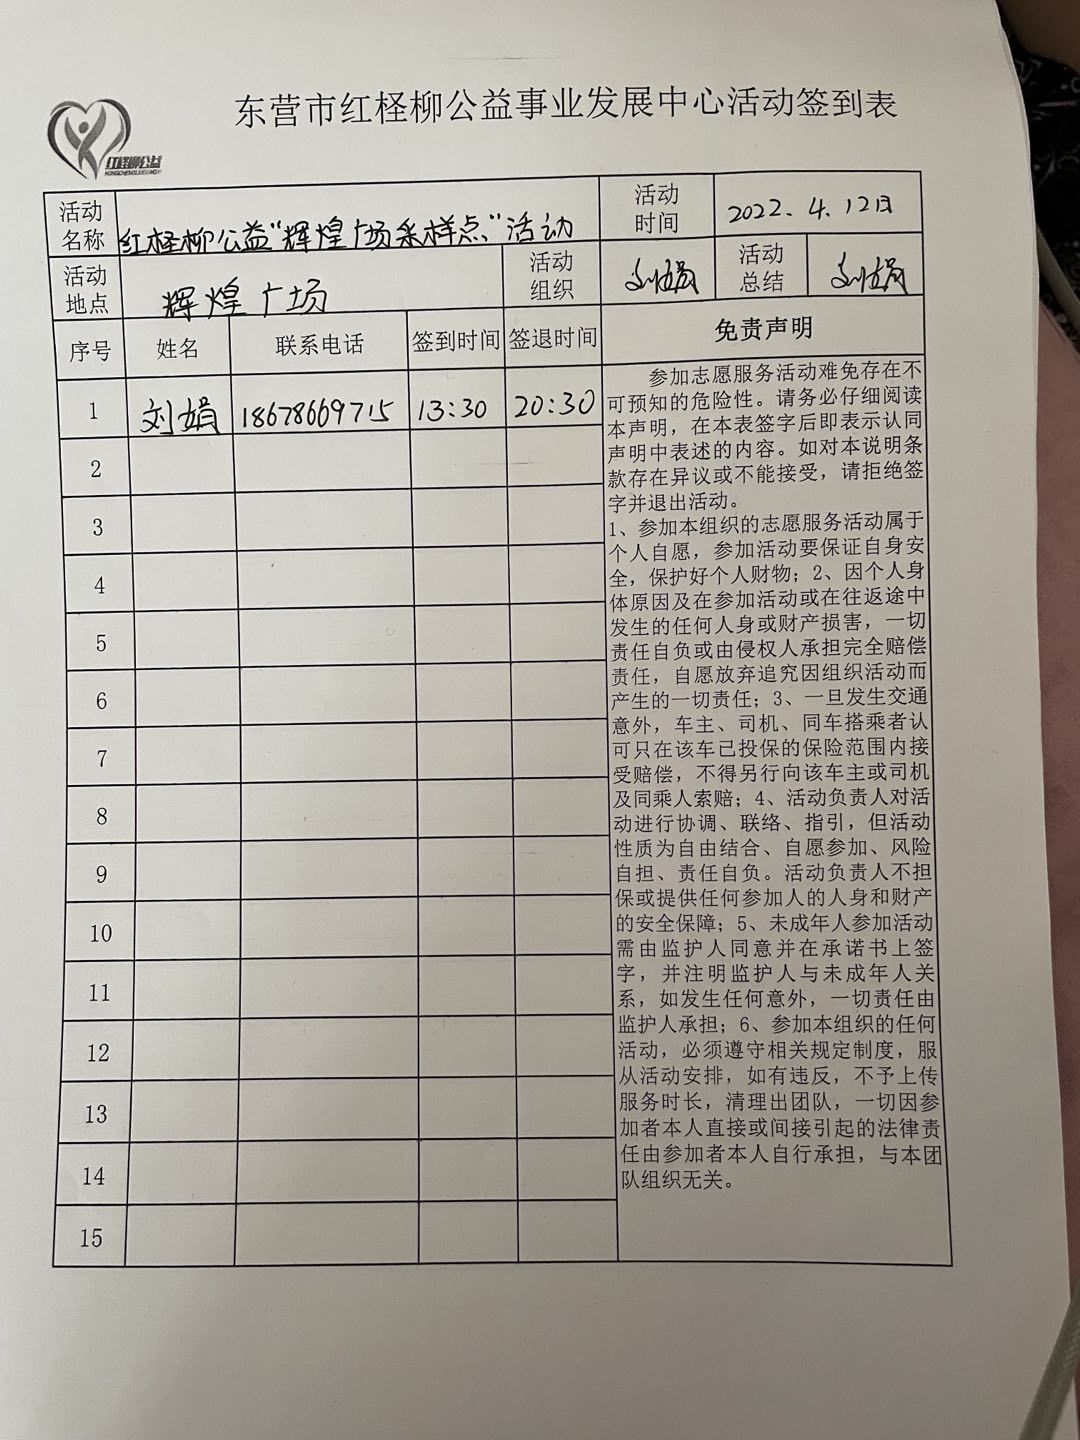 东营市红柽柳公益事业发展中心活动签到表
红柽柳公益
HONGCHENGLIUGONGYI
活动名称 红柽柳公益“辉煌广场采样点”活动 活动时间 2022.4.12日
活动地点 辉煌广场 活动组织 刘娟 活动总结 刘娟
序号 姓名 联系电话 签到时间 签退时间 免责声明
1 刘娟 18678669715 13:30 20:30
2
3
4
5
6
7
8
9
10
11
12
13
14
15
参加志愿服务活动难免存在不
可预知的危险性。请务必仔细阅读
本声明，在本表签字后即表示认同
声明中表述的内容。如对本说明条
款存在异议或不能接受，请拒绝签
字并退出活动。
1、参加本组织的志愿服务活动属于
个人自愿，参加活动要保证自身安
全，保护好个人财物；2、因个人身
体原因及在参加活动或在往返途中
发生的任何人身或财产损害，一切
责任自负或由侵权人承担完全赔偿
责任，自愿放弃追究因组织活动而
产生的一切责任；3、一旦发生交通
意外，车主、司机、同车搭乘者认
可只在该车已投保的保险范围内接
受赔偿，不得另行向该车主或司机
及同乘人索赔；4、活动负责人对活
动进行协调、联络、指引，但活动
性质为自由结合、自愿参加、风险
自担、责任自负。活动负责人不担
保或提供任何参加人的人身和财产
的安全保障；5、未成年人参加活动
需由监护人同意并在承诺书上签
字，并注明监护人与未成年人关
系，如发生任何意外，一切责任由
监护人承担；6、参加本组织的任何
活动，必须遵守相关规定制度，服
从活动安排，如有违反，不予上传
服务时长，清理出团队，一切因参
加者本人直接或间接引起的法律责
任由参加者本人自行承担，与本团
队组织无关。